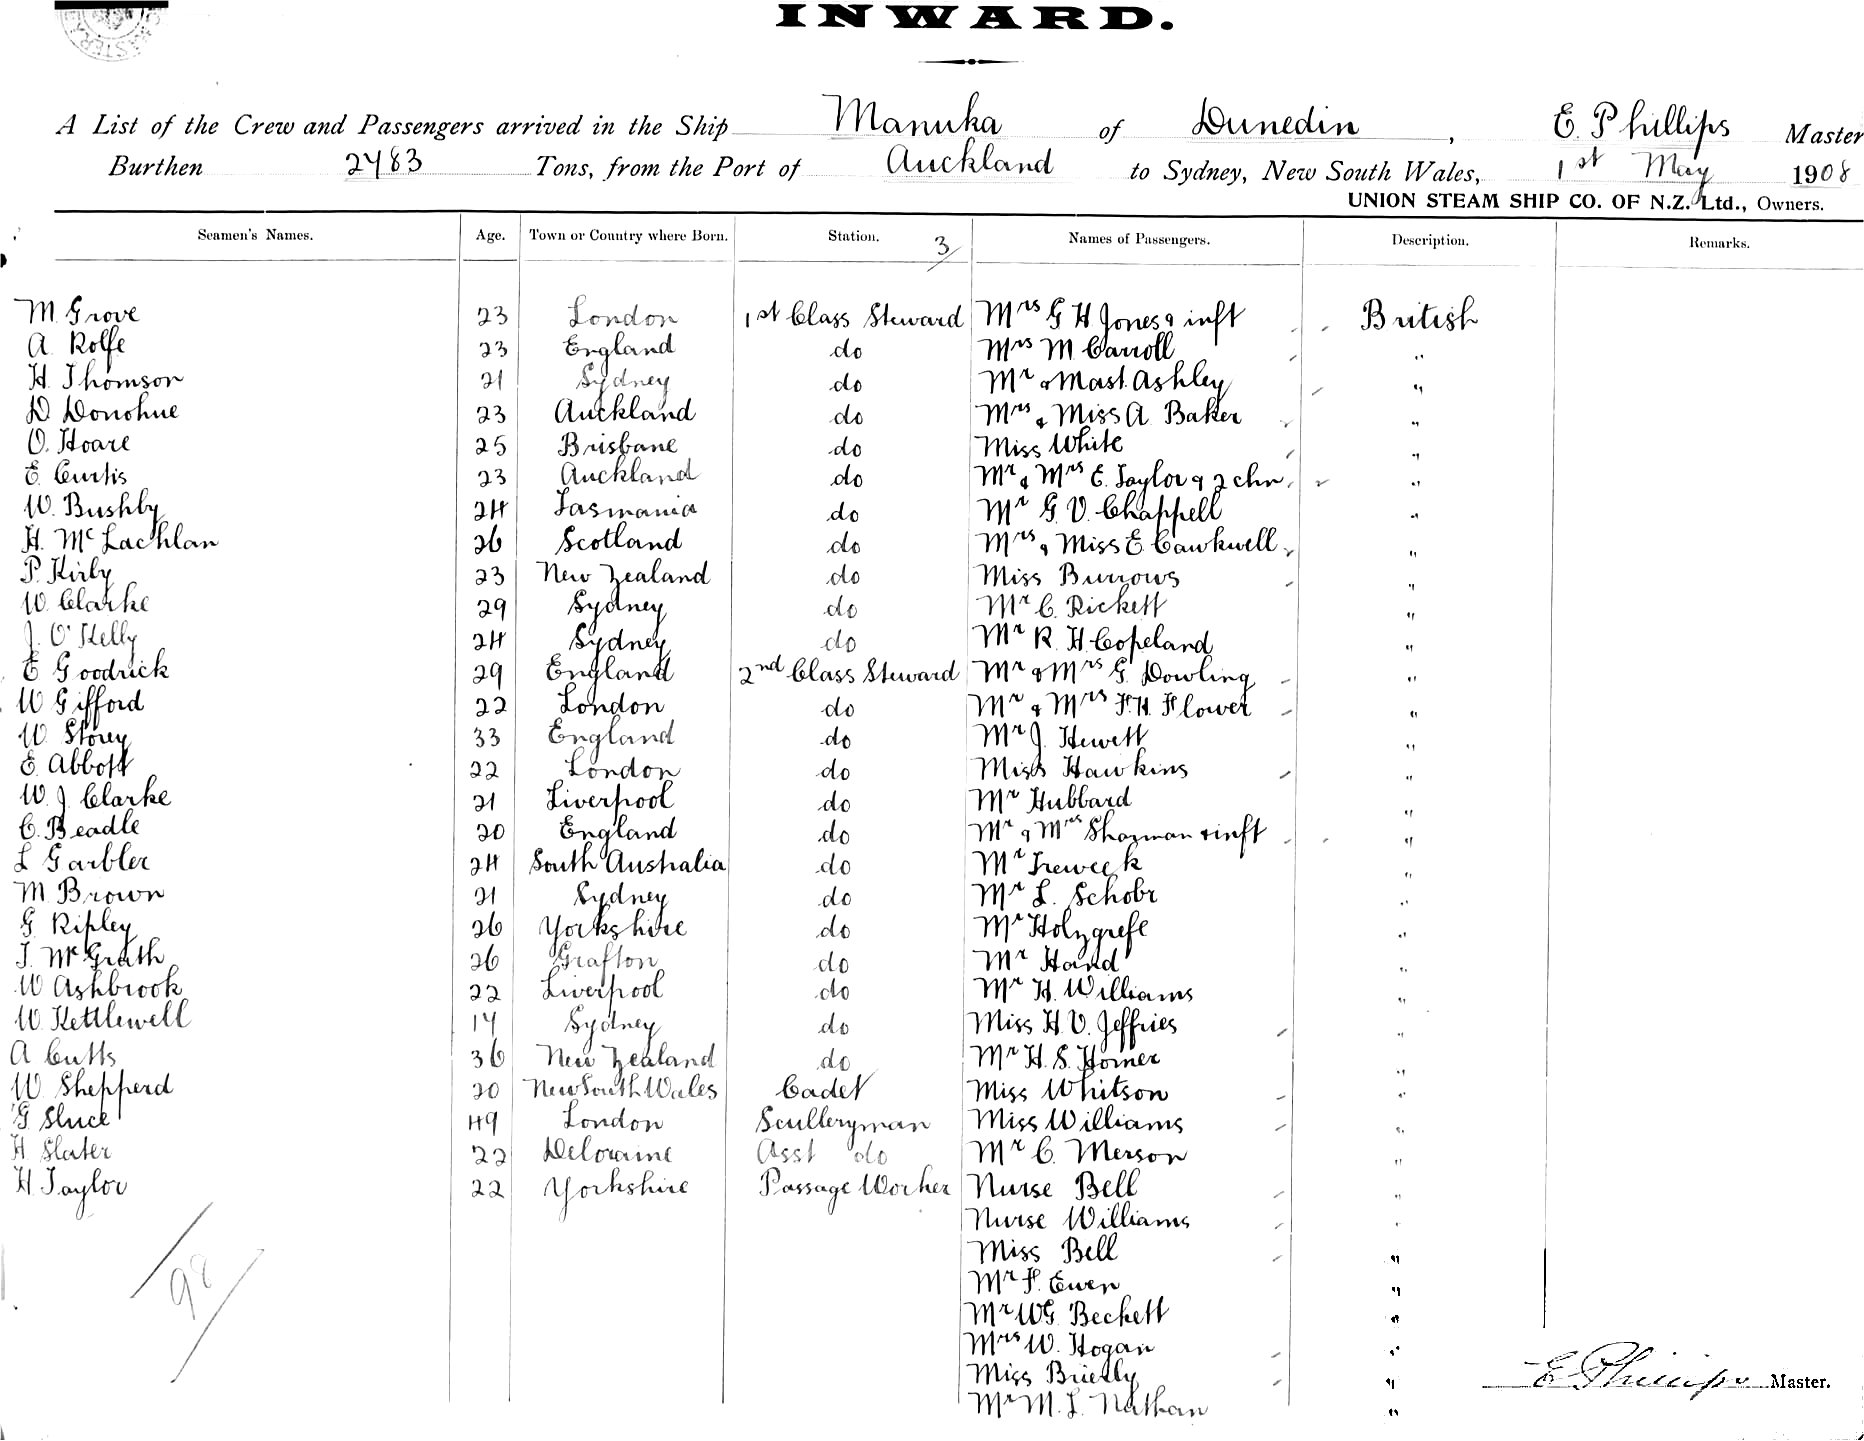 INWARD.
A List of the Crew and Passengers arrived in the Ship Manuka of Dunedin, E. Phillips Master
Burthen 2483 Tons, from the Port of Auckland to Sydney, New South Wales, 1st May 1908
UNION STEAM SHIP CO. OF N.Z. Ltd., Owners.
Seamen's Names. Age. Town or Country where Born. Station. 3 Names of Passengers. Description. Remarks.
M. Grove 23 London 1st Class Steward Mrs G H Jones & inft British
A. Rolfe 23 England do Mrs M Carroll "
H. Thomson 21 Sydney do Mr & Mast. Ashley "
D Donohue 23 Auckland do Mrs & Miss A. Baker "
O. Hoare 25 Brisbane do Miss White "
E. Curtis 23 Auckland do Mr & Mrs E. Taylor & 2 chn "
W. Bushby 24 Tasmania do Mr G. V. Chappell "
H. McLachlan 26 Scotland do Mrs & Miss E. Cawkwell "
P. Kirby 23 New Zealand do Miss Burrows "
W. Clarke 29 Sydney do Mr C. Rickett "
J. O'Kelly 24 Sydney do Mr R. H. Copeland "
E Goodrick 29 England 2nd Class Steward Mr & Mrs G. Dowling "
W Gifford 22 London do Mr & Mrs F. H. Flower "
W. Storey 33 England do Mr J. Hewett "
E. Abbott 22 London do Miss Hawkins "
W. J. Clarke 21 Liverpool do Mr Hubbard "
C. Beadle 20 England do Mr & Mrs Shazman & inft "
L Garbler 24 South Australia do Mr Treweek "
M Brown 21 Sydney do Mr L. Schobr "
G. Ripley 26 Yorkshire do Mr Holzgrefe "
J. McGrath 26 Grafton do Mr Hand "
W Ashbrook 22 Liverpool do Mr H. Williams "
W. Kettlewell 17 Sydney do Miss H. V. Jeffries "
A Cutts 36 New Zealand do Mr H. S. Horner "
W. Shepperd 20 New South Wales Cadet Miss Whitson "
G. Sluce 49 London Sculleryman Miss Williams "
H Slater 22 Deloraine Asst do Mr C. Merson "
H. Taylor 22 Yorkshire Passage Worker Nurse Bell "
Nurse Williams "
Miss Bell "
Mr F. Ewen "
Mr W G. Beckett "
Mrs W. Hogan "
Miss Brierly "
Mr M. L. Nathan "
98
E Phillips Master.